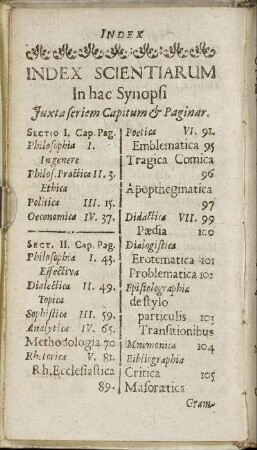 INDEX
INDEX SCIENTIARUM
In hac Synopsi
Juxta seriem Capitum & Paginar.
SECTIO I. Cap. Pag.
Philosophia I.
In genere
Philos. Practica II. 3.
Ethica
Politica III. 15.
Oeconomica IV. 37.
SECT. II. Cap. Pag.
Philosophia I. 43.
Effectiva
Dialectica II. 49.
Topica
Sophistica III. 59.
Analytica IV. 65.
Methodologia 70
Rhetorica V. 81.
Rh. Ecclesiastica
89.
Poetica VI. 91.
Emblematica 95
Tragica Comica
96
Apopthegmatica
97
Didactica VII. 99
Pædia 100
Dialogistica
Erotematica 101
Problematica 102
Epistolographia
de stylo
particulis 103
Transitionibus
Mnemonica 104
Bibliographia
Critica 105
Masorætica
Gram-